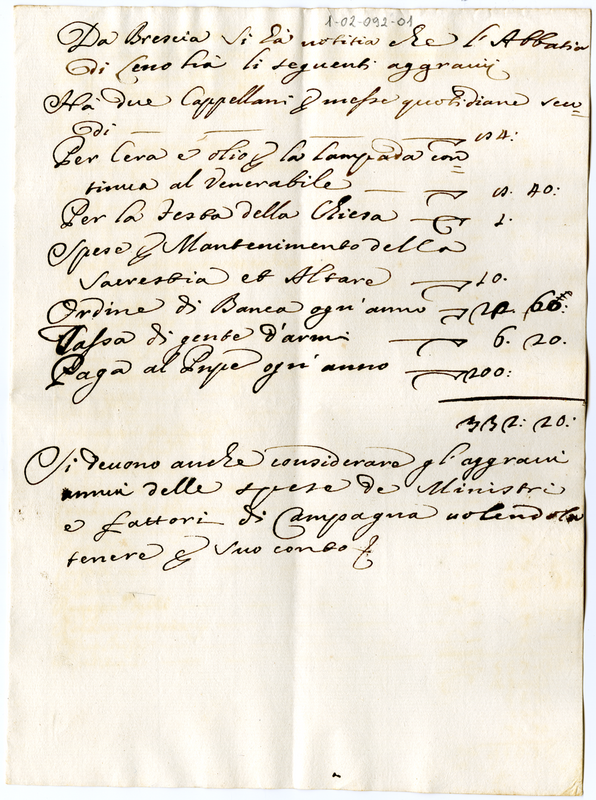 1-02-092-01
Da Brescia si hà notitia che l'Abbatia
di Leno hà li seguenti aggravij
Hà due Cappellani ꝑ messe quotidiane scu=
di
Per Cera e olio ꝑ la lampada con=
tinua al Venerabile 40:
Per la festa della Chiesa
Spese ꝑ Mantenimento della
Sacrestia et Altare 10.
Ordine di Banca ogn'anno 60:
Tassa di gente d'armi 6. 20.
Paga al Pnpe ogn'anno 200:
332: 20:
Si devono anche considerare gl'aggravij
annui delle spese de Ministri
e fattori di Campagna volendola
tenere ꝑ suo conto